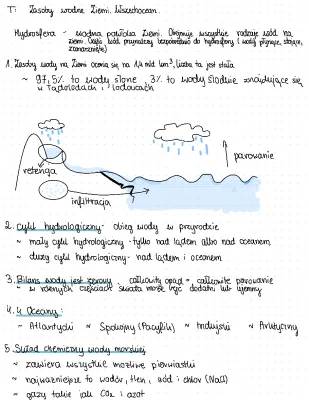 T: Zasoby wodne Ziemi. Wszechocean.
Hydrosfera - wodna powłoka Ziemi. Obejmuje wszystkie rodzaje wód na
ziemi. Część wód przynależy bezpośrednio do hydrosfery (wody płynące, stojące,
zamarznięte)
1. Zasoby wody na Ziemi ocenia się na 1,4 mld km³, liczba ta jest stała
~ 97,5% to wody słone, 3% to wody słodkie znajdujące się
w lądolodach i lodowcach
parowanie
retencja
infiltracja
2. cykl hydrologiczny - obieg wody w przyrodzie
~ mały cykl hydrologiczny - tylko nad lądem albo nad oceanem
~ duży cykl hydrologiczny - nad lądem i oceanem
3. Bilans wody jest zerowy - całkowity opad = całkowite parowanie
~ w różnych częściach świata może być dodatni lub ujemny
4. 4 Oceany:
~ Atlantycki ~ Spokojny (Pacyfik) ~ Indyjski ~ Arktyczny
5. Skład chemiczny wody morskiej
~ zawiera wszystkie możliwe pierwiastki
~ najważniejsze to wodór, tlen, sód i chlor (NaCl)
~ gazy takie jak CO₂ i azot